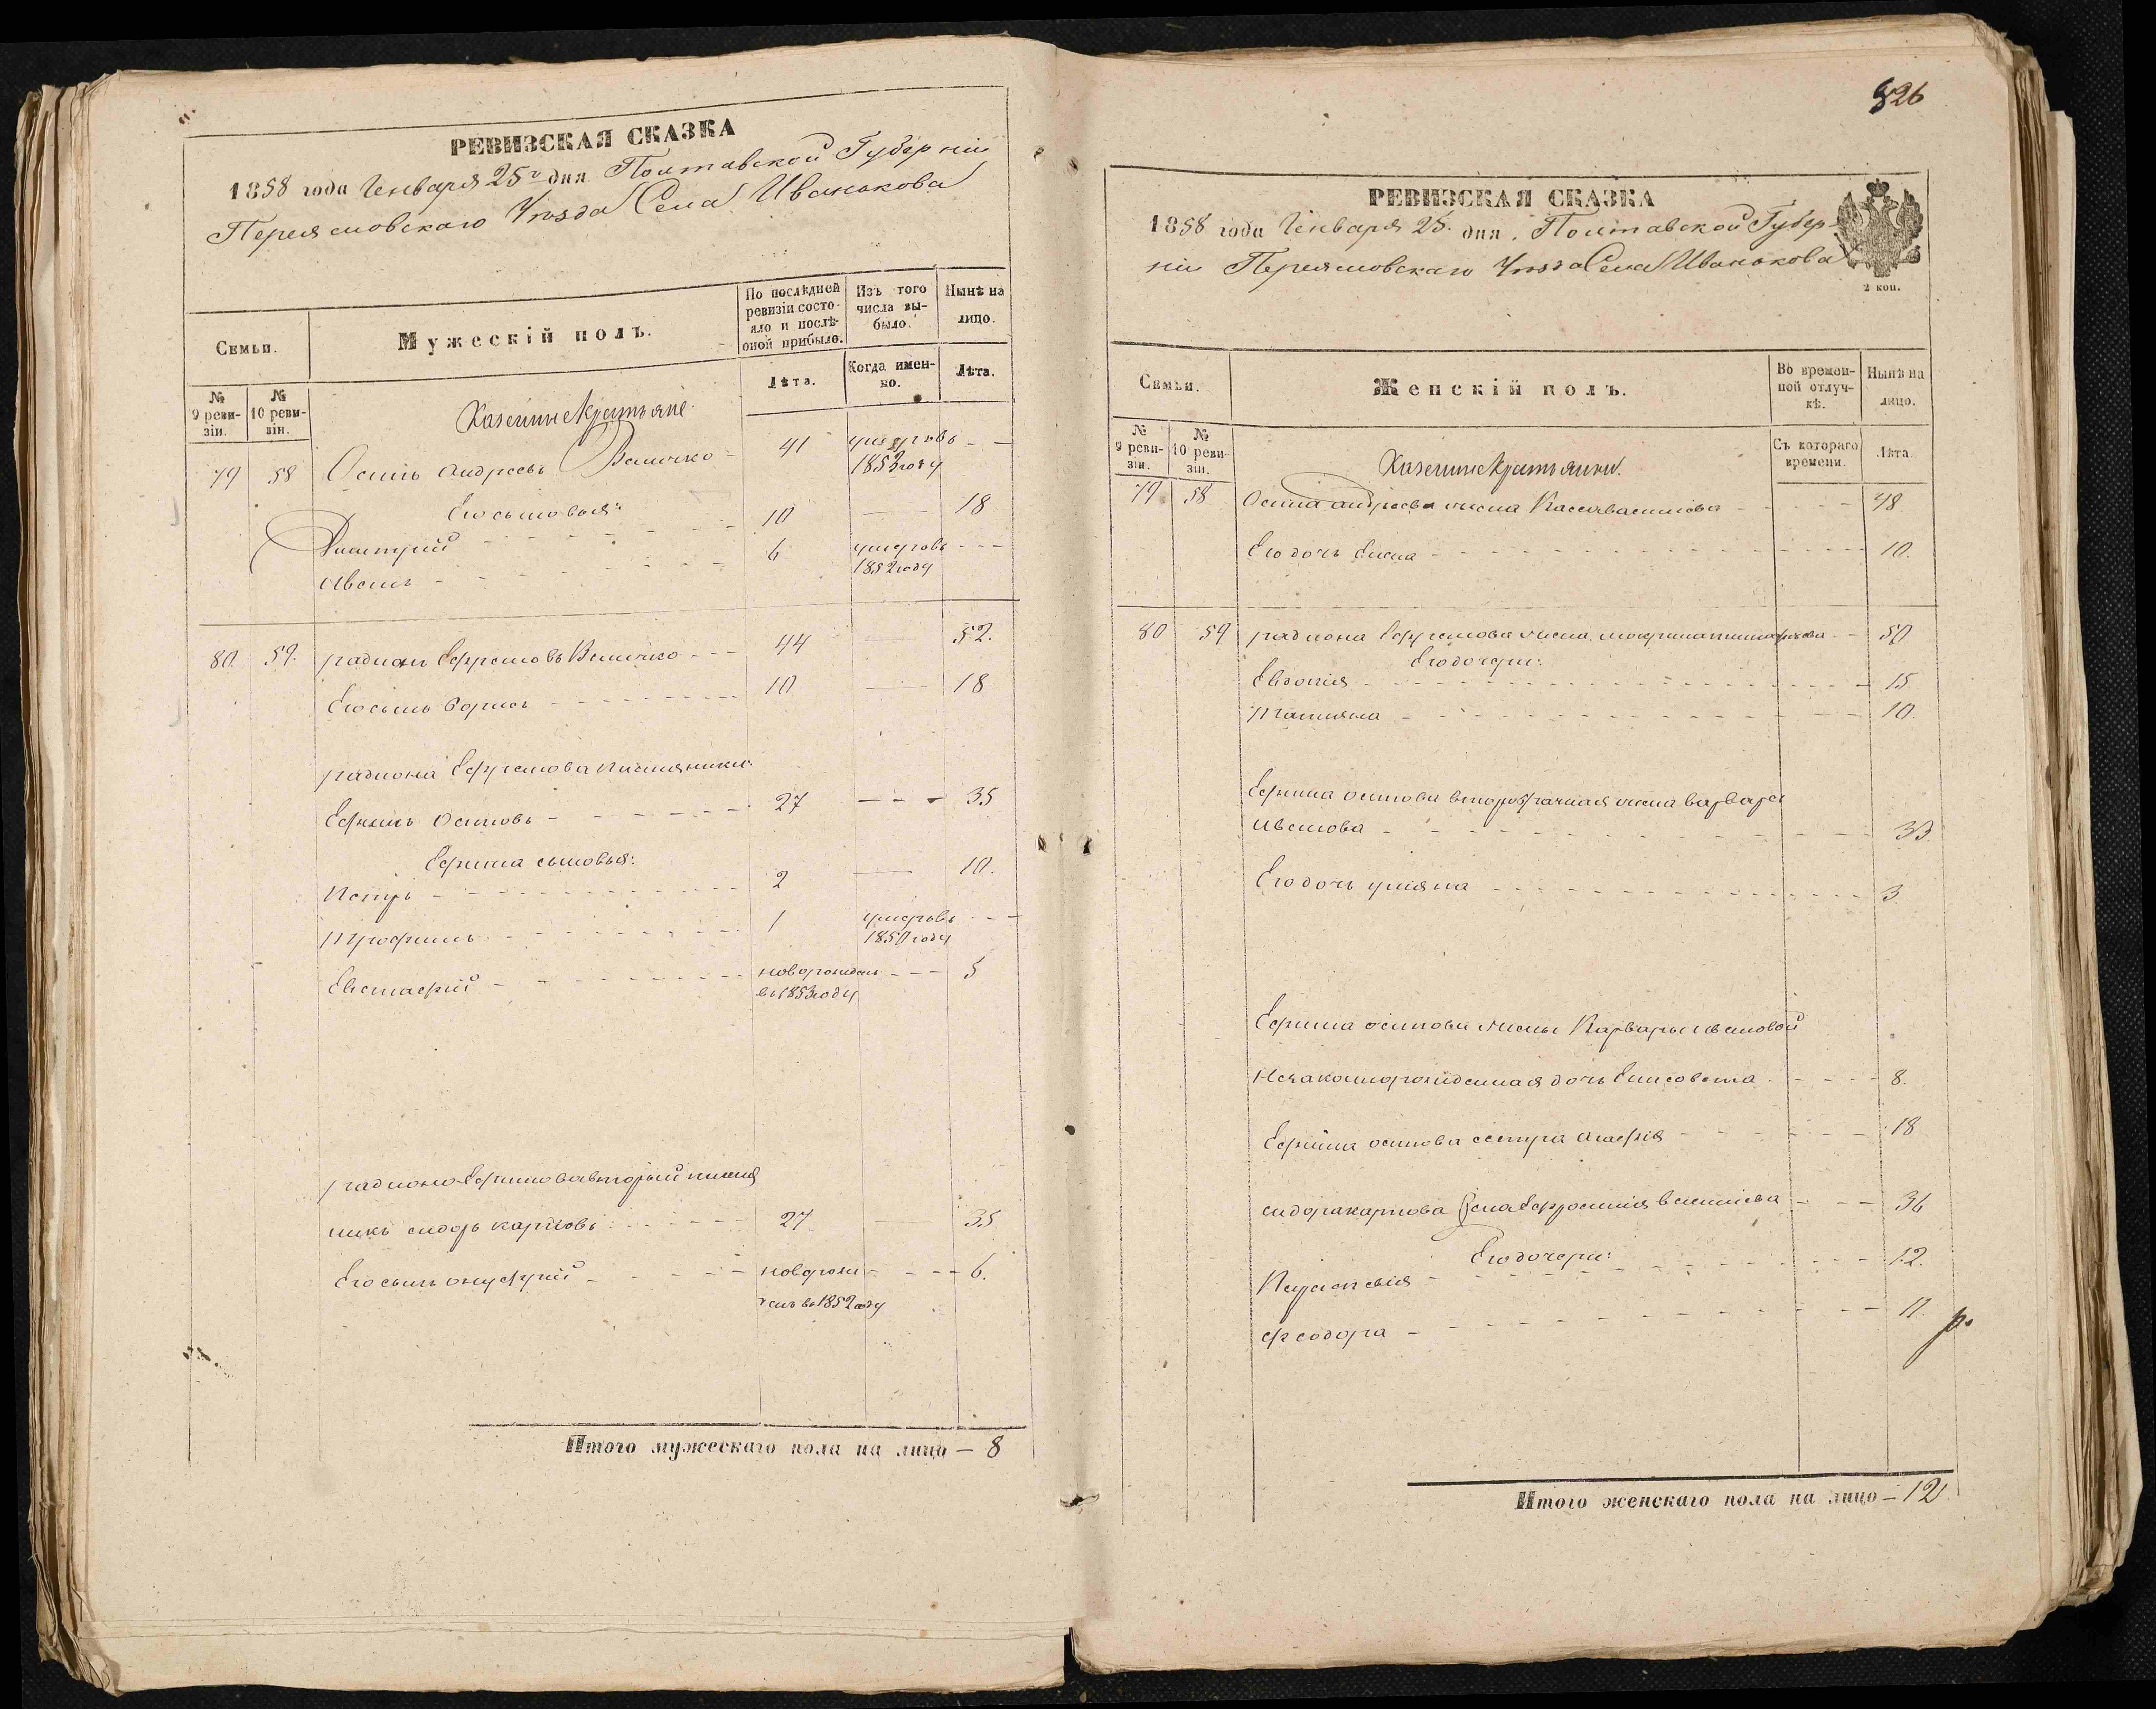 РЕВИЗСКАЯ СКАЗКА
1858 года Генваря 25го дня Полтавской Губерніи
Переяславскаго Уѣзда Села Иванькова
Семьи.
Мужескій полъ.
По послѣдней ревизіи состояло и послѣ оной прибыло.
Изъ того числа выбыло.
Нынѣ на лицо.
№ 9 ревизіи.
№ 10 ревизіи.
Лѣта.
Когда именно.
Лѣта.
Казенные Крестьяне
79 58 Осипъ Андреевъ Величко - 41 умеръ въ 1853 году - -
Его сыновья:
Димитрий - - - 10 — 18
Иванъ - - - 6 умеръ въ 1852 году - - -
80. 59. радионъ Ефремовъ Величко - - - 44 — 52.
Его сынъ Борисъ - - - 10 — 18
радиона Ефремова племяники:
Ефимъ Осиповъ - - - 27 - - - 35
Ефима сыновья:
Петръ - - - 2 — 10.
Трофимъ - - - 1 умеръ въ 1850 году - - -
Евстафий - - - новорожденъ въ 1853 году - - - 5
радиона Ефимова вторый племя
никъ сидоръ карповъ - - - 27 — 35
Его сынъ онуфрий - - - новорож
денъ въ 1852 году - - - 6.
Итого мужескаго пола на лицо — 8
826
РЕВИЗСКАЯ СКАЗКА
1858 года Генваря 25. дня. Полтавской Губер-
ніи Переяславскаго Уѣзда Села Иванькова
2 коп.
Семьи.
Женскій полъ.
Во временной отлучкѣ.
Нынѣ на лицо.
№ 9 ревизіи.
№ 10 ревизіи.
Съ котораго времени.
Лѣта.
Казенные Крестьянки.
79 58 Осипа андреева жена васильева - - - 48
Его дочь Елена - - - 10.
80 59 радиона Ефремова жена - - 50
Его дочери:
Евдокия - - - 15
Татияна - - - 10.
Ефима осипова второбрачная жена варвара
иванова - - - 33.
Его дочь улияна - - - 3
Ефима осипова жены Варвары ивановой
Незаконнорожденная дочь Елисовета - - - 8.
Ефима осипова сестра - - - 18
сидора карпова жена Ефросиния васильева - - - 36
Его дочери:
Параскевия - - - 12.
феодора - - - 11.
Итого женскаго пола на лицо — 12